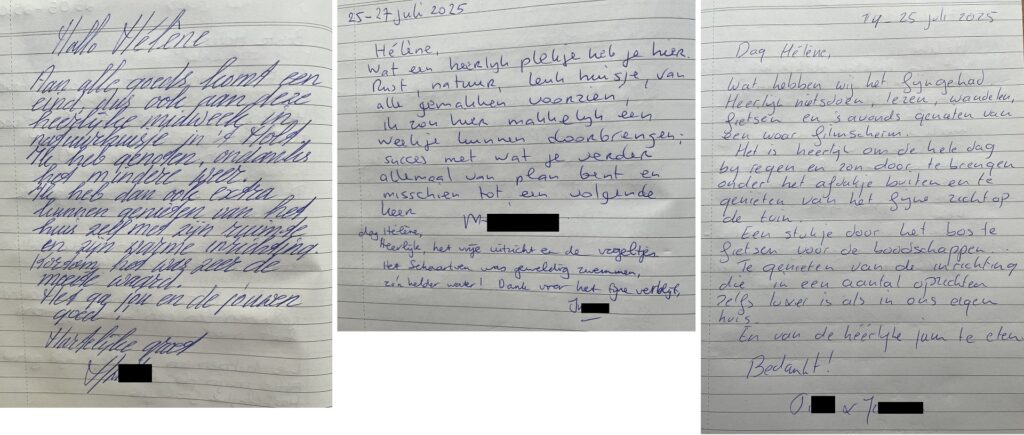 Hallo Hélène
Aan alle goeds komt een
eind, dus ook aan deze
heerlijke midweek in
natuurhuisje in 't Holt
Ik heb genoten, ondanks
het mindere weer.
Ik heb dan ook extra
kunnen genieten van het
huis zelf met zijn ruimte
en zijn warme inrichting
Kortom het was zeer de
moeite waard.
Het ga jou en de jouwen
goed!
Hartelijke groet
25-27 juli 2025
Hélène,
Wat een heerlijk plekje heb je hier.
Rust, natuur, leuk huisje, van
alle gemakken voorzien,
ik zou hier makkelijk een
weekje kunnen doorbrengen;
succes met wat je verder
allemaal van plan bent en
misschien tot een volgende
keer
M
dag Hélène,
Heerlijk, het vrije uitzicht en de vogeltjes
Het Schaartven was geweldig zwemmen,
zo'n helder water! Dank voor het fijne verblijf,
14-25 juli 2025
Dag Hélène,
Wat hebben wij het fijn gehad
Heerlijk nietsdoen, lezen, wandelen,
fietsen en 's avonds genoten van
een waar filmscherm.
Het is heerlijk om de hele dag
bij regen en zon door te brengen
onder het afdakje buiten en te
genieten van het fijne zicht op
de tuin.
Een stukje door het bos te
fietsen voor de boodschappen.
Te genieten van de inrichting
die in een aantal opzichten
zelfs luxer is als in ons eigen
huis.
En van de héérlijke jam te eten
Bedankt!
&